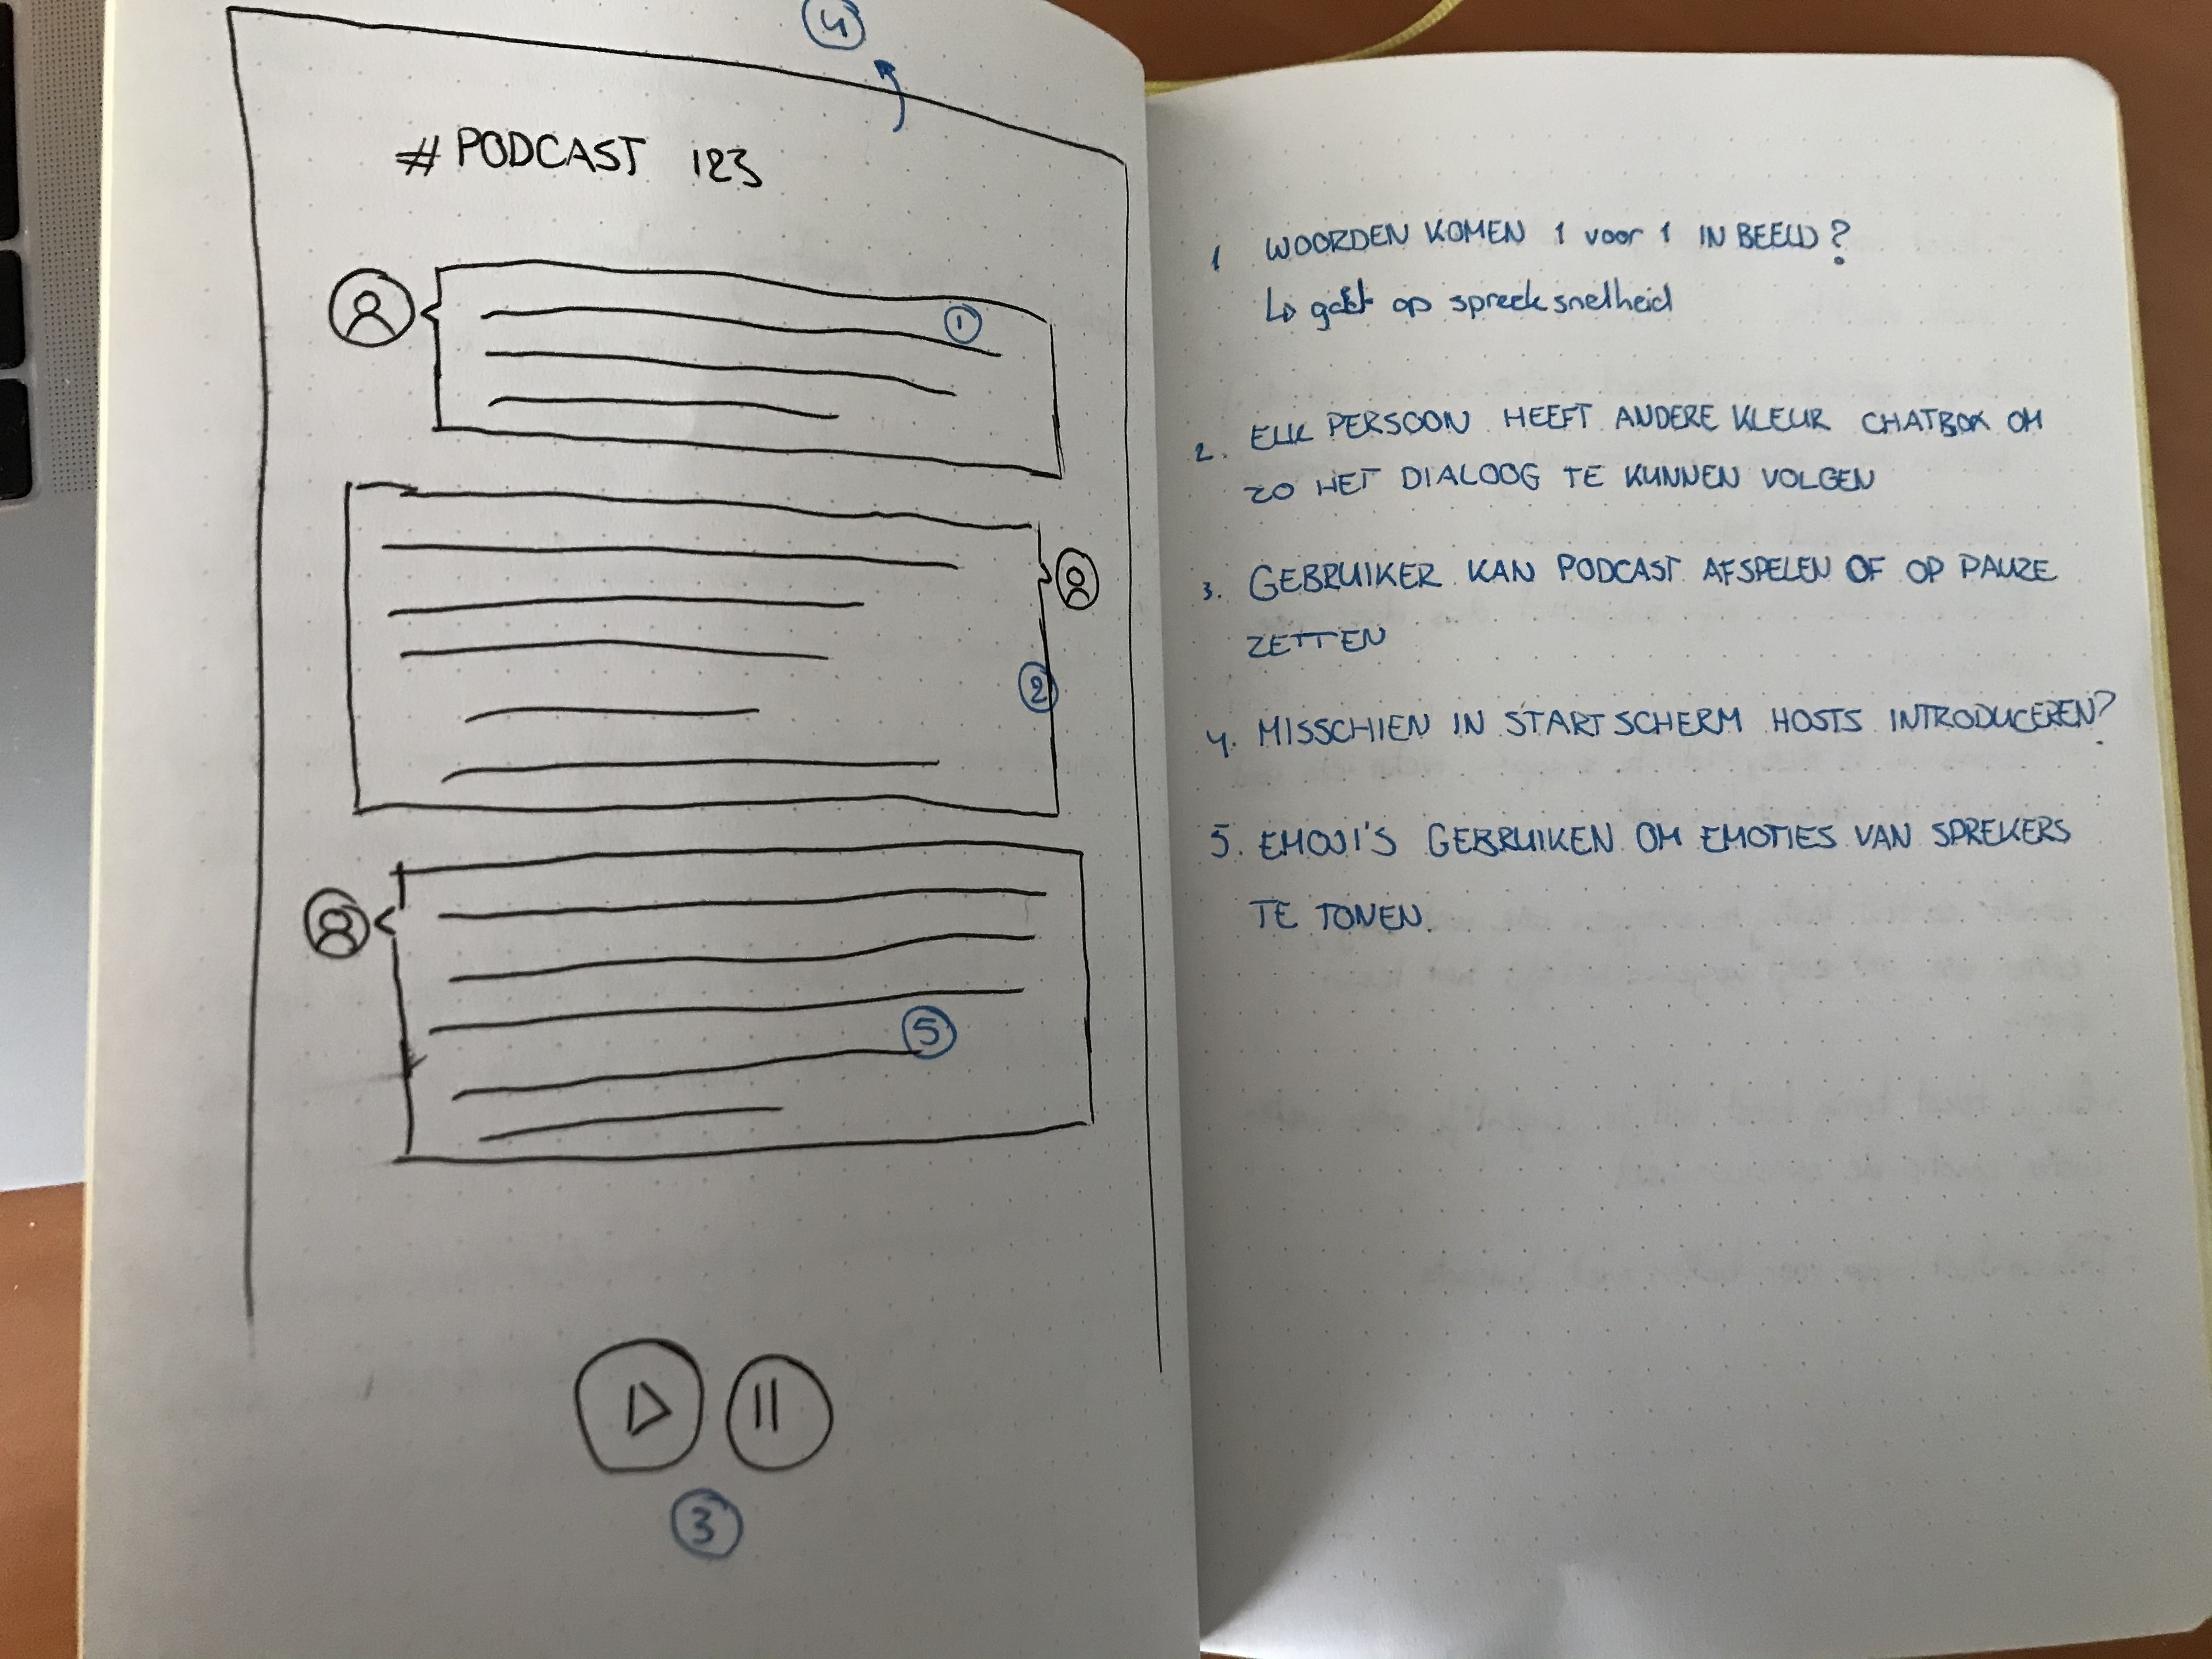 4
# PODCAST 123
1
2
5
3
1 WOORDEN KOMEN 1 voor 1 IN BEELD?
↳ gaat op spreeksnelheid
2. ELK PERSOON HEEFT ANDERE KLEUR CHATBOX OM
ZO HET DIALOOG TE KUNNEN VOLGEN
3. GEBRUIKER KAN PODCAST AFSPELEN OF OP PAUZE
ZETTEN
4. MISSCHIEN IN STARTSCHERM HOSTS INTRODUCEREN?
5. EMOJI'S GEBRUIKEN OM EMOTIES VAN SPREKERS
TE TONEN.